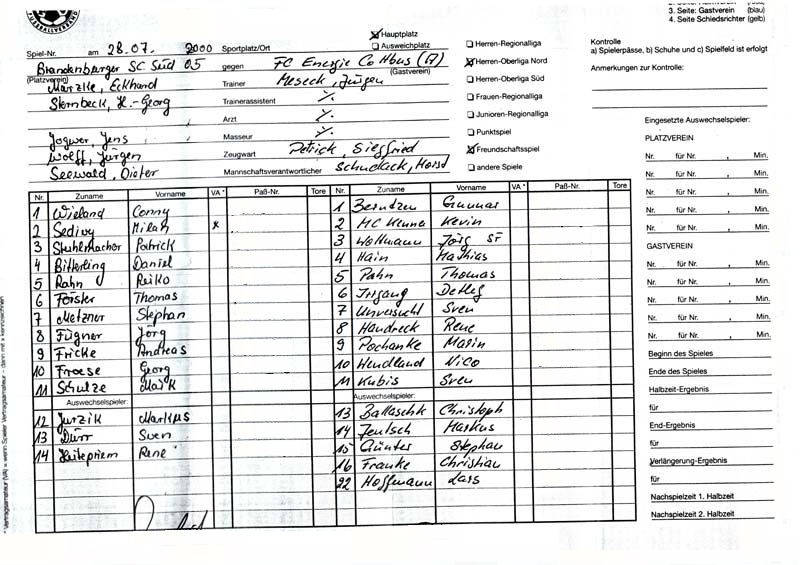 FUSSBALLVERBAND
3. Seite: Gastverein (blau)
4. Seite Schiedsrichter (gelb)
Spiel-Nr. am 28.07. 2000 Sportplatz/Ort
Hauptplatz
Ausweichplatz
Brandenburger SC Süd 05 gegen FC Energie Cottbus (A)
(Platzverein) (Gastverein)
Märzke, Eckhard Trainer Meseck, Jürgen
Sternbeck, H.-Georg Trainerassistent
Arzt
Jogwer, Jens Masseur
Wolff, Jürgen Zeugwart Petrick, Siegfried
Seewald, Dieter Mannschaftsverantwortlicher Schudack, Horst
Herren-Regionalliga
Herren-Oberliga Nord
Herren-Oberliga Süd
Frauen-Regionalliga
Junioren-Regionalliga
Punktspiel
Freundschaftsspiel
andere Spiele
Kontrolle
a) Spielerpässe, b) Schuhe und c) Spielfeld ist erfolgt
Anmerkungen zur Kontrolle:
Nr. Zuname Vorname VA * Paß-Nr. Tore
1 Wieland Conny
2 Sedivy Milan x
3 Stuhlmacher Patrick
4 Bitterling Daniel
5 Rahn Reiko
6 Förster Thomas
7 Metzner Stephan
8 Fügner Jörg
9 Fricke Andreas
10 Froese Georg
11 Schulze Maik
Auswechselspieler:
12 Jurzik Markus
13 Dürr Sven
14 Heitepriem René
Nr. Zuname Vorname VA * Paß-Nr. Tore
1 Berntzen Gunnar
2 MC Kenna Kevin
3 Wollmann Jörg
4 Hain Mathias
5 Pahn Thomas
6 Irrgang Detlef
7 Unversucht Sven
8 Handreck Rene
9 Pochanke Mario
10 Wendland Nico
11 Kubis Sven
Auswechselspieler:
13 Ballaschk Christoph
14 Jentsch Markus
15 Günter Stephan
16 Franke Christian
22 Hoffmann Lars
Eingesetzte Auswechselspieler:
PLATZVEREIN
Nr. für Nr. , Min.
Nr. für Nr. , Min.
Nr. für Nr. , Min.
Nr. für Nr. , Min.
Nr. für Nr. , Min.
GASTVEREIN
Nr. für Nr. , Min.
Nr. für Nr. , Min.
Nr. für Nr. , Min.
Nr. für Nr. , Min.
Nr. für Nr. , Min.
Beginn des Spieles
Ende des Spieles
Halbzeit-Ergebnis
für
End-Ergebnis
für
Verlängerung-Ergebnis
für
Nachspielzeit 1. Halbzeit
Nachspielzeit 2. Halbzeit
* Vertragsamateur (VA) = wenn Spieler Vertragsamateur – dann mit x kennzeichnen